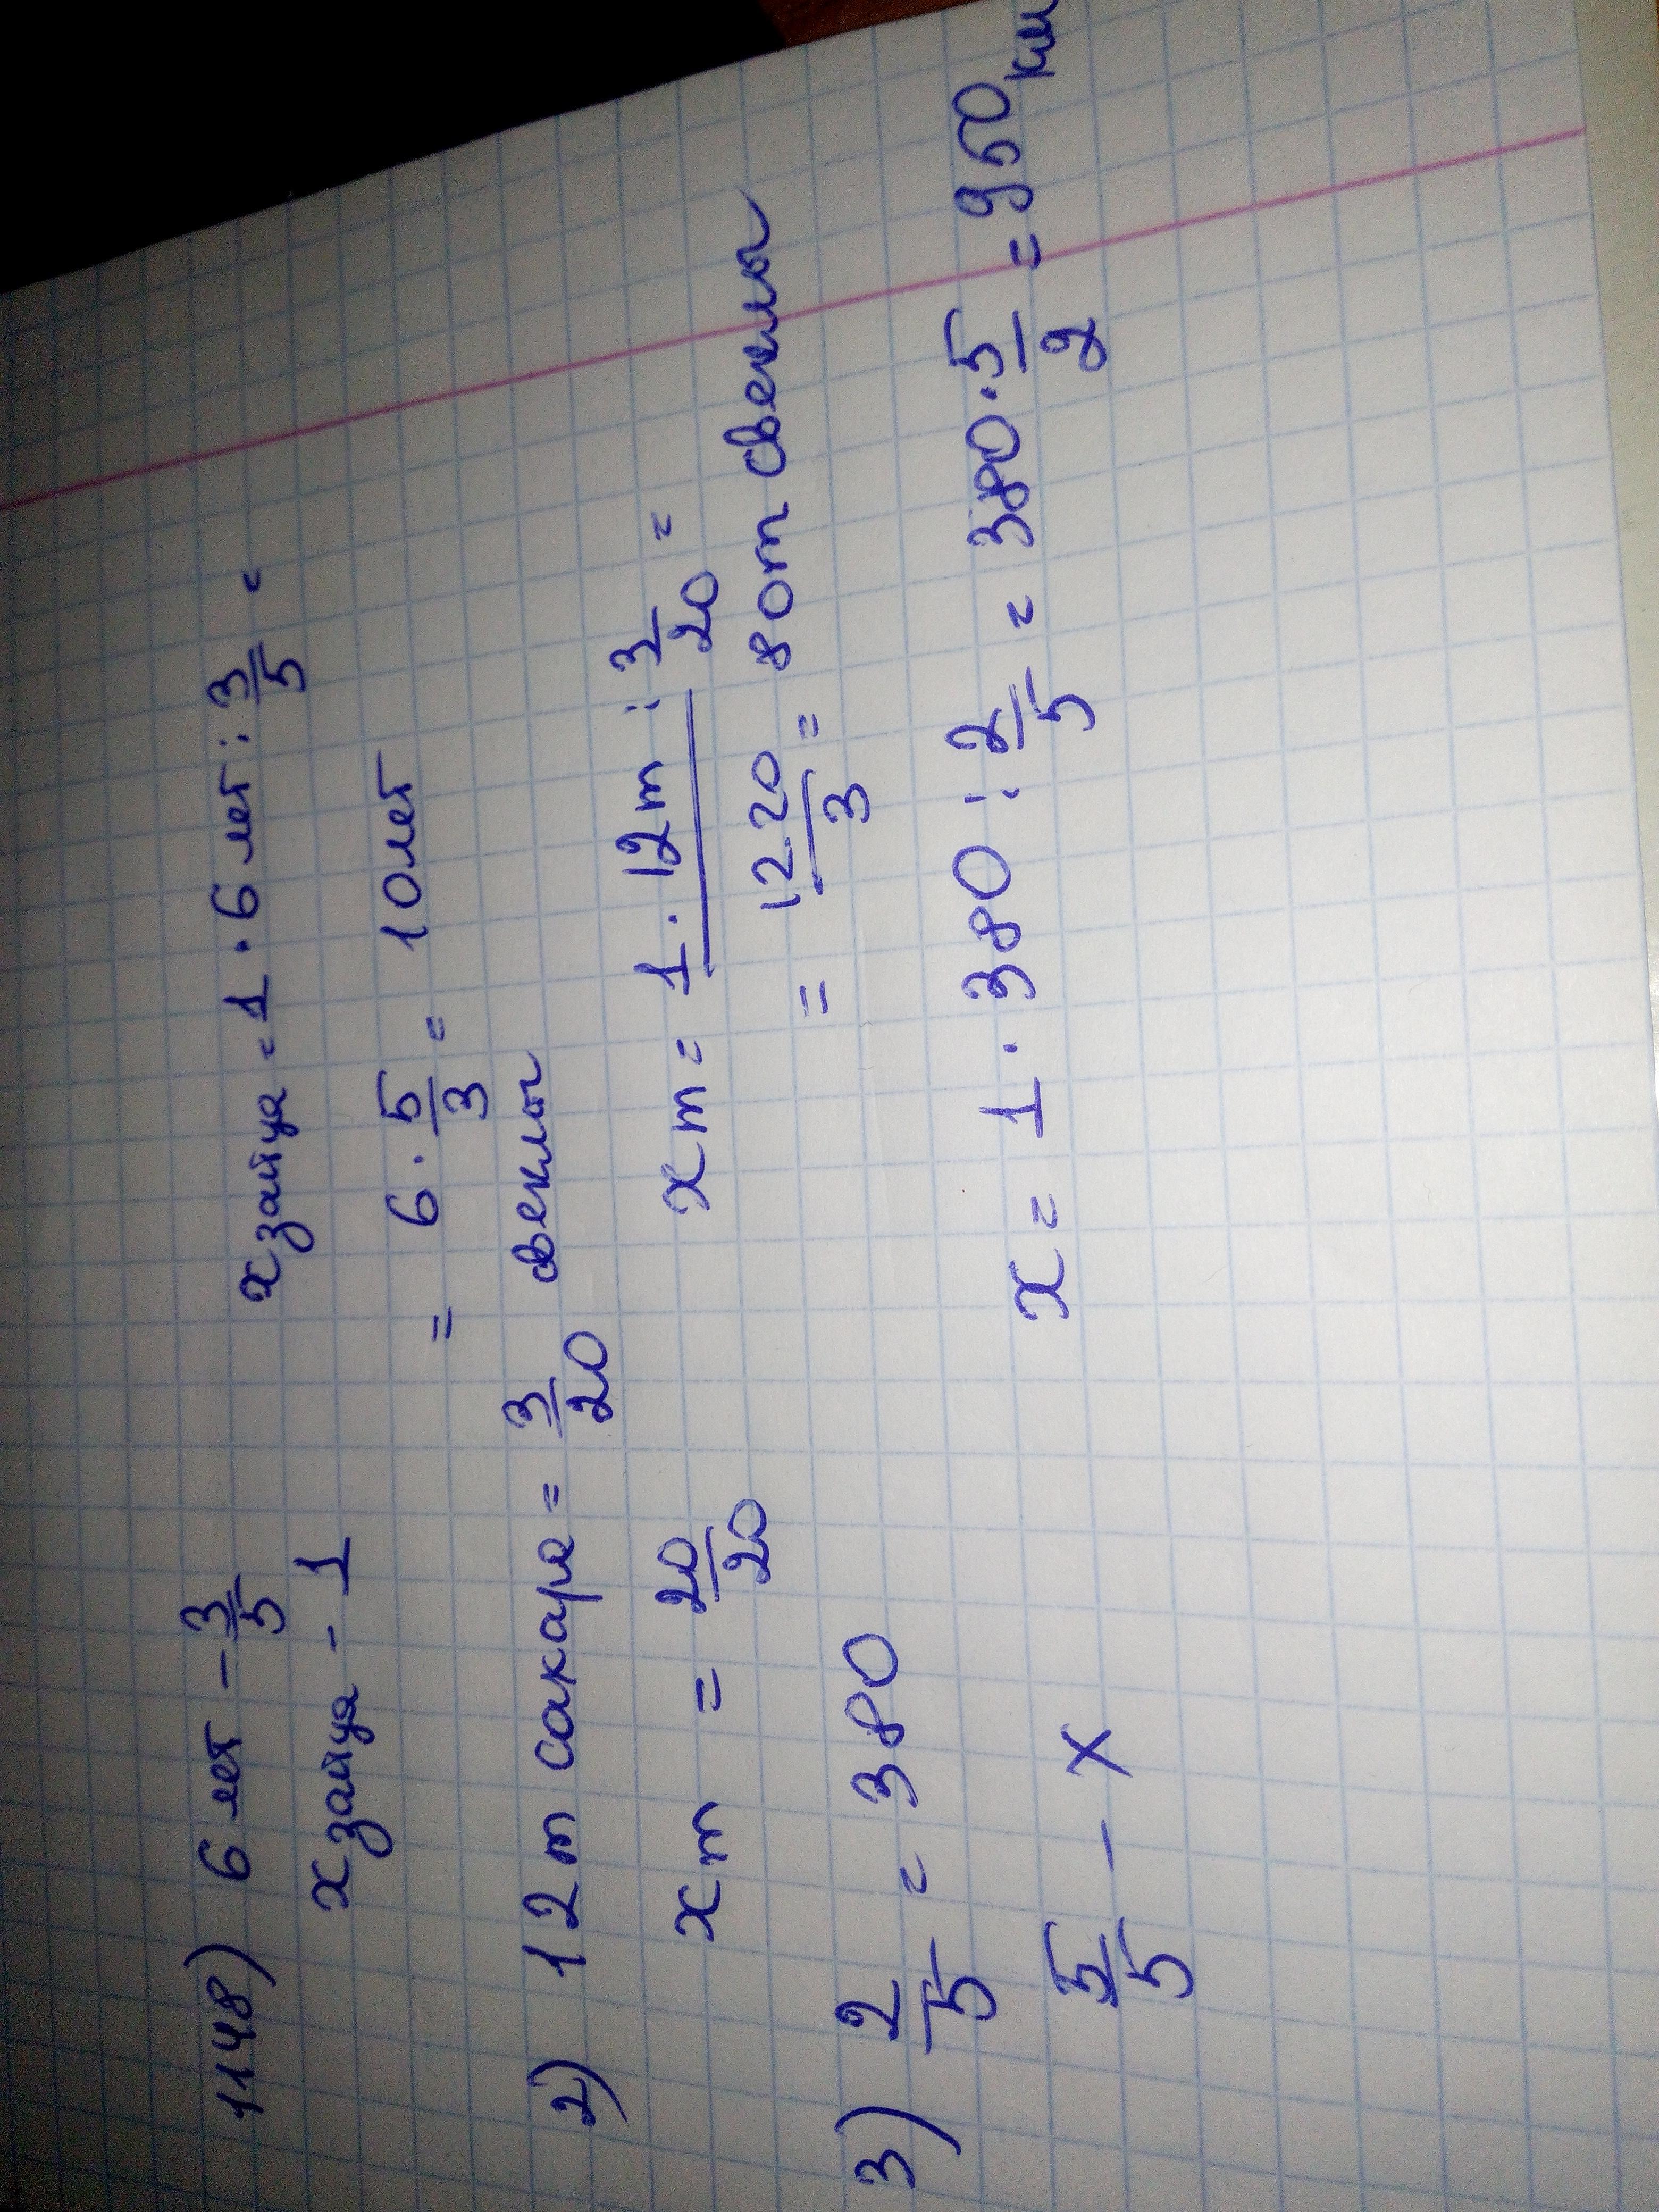 1148) 6 лет - 3/5 x зайца = 1 · 6 лет : 3/5 =
x зайца - 1 = 6 · 5/3 = 10 лет
2) 12 т сахара = 3/20 свеклы
x т = 20/20 x т = 1 · 12 т : 3/20 =
= 12 · 20/3 = 80 т свеклы
3) 2/5 = 380
5/5 - x x = 1 · 380 : 2/5 = 380 · 5/2 = 950 км